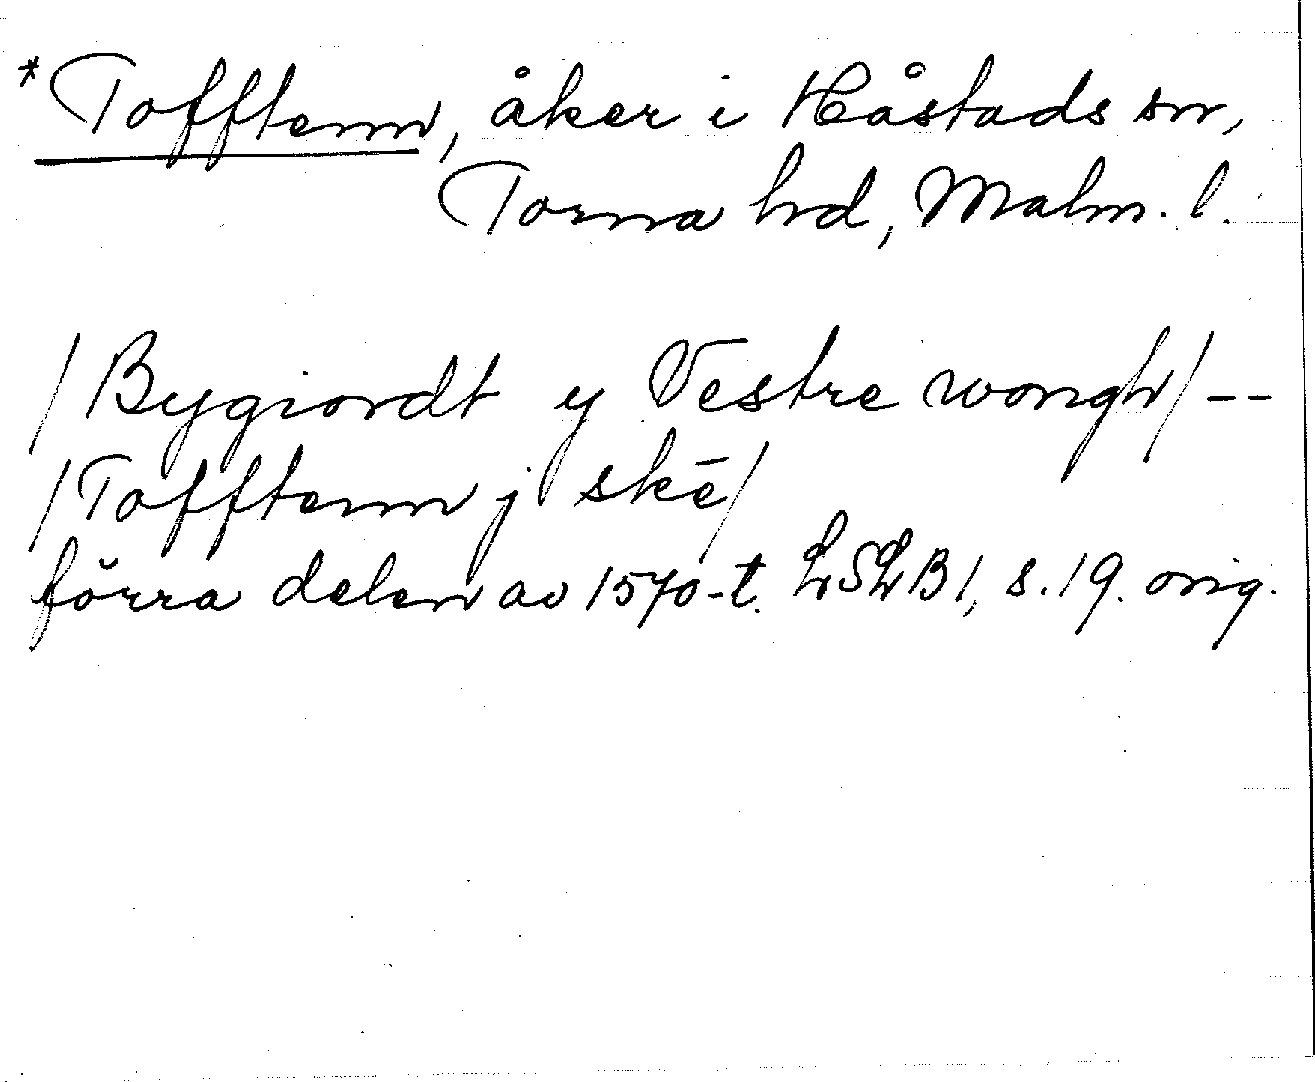 *Tofftenn, åker i Håstads sn,
Torna hd, Malm. l.
/Bygiordt y Vestre wongh/--
/Tofftenn j skē/
förra delen av 1570-t. LSLB1, s.19. orig.